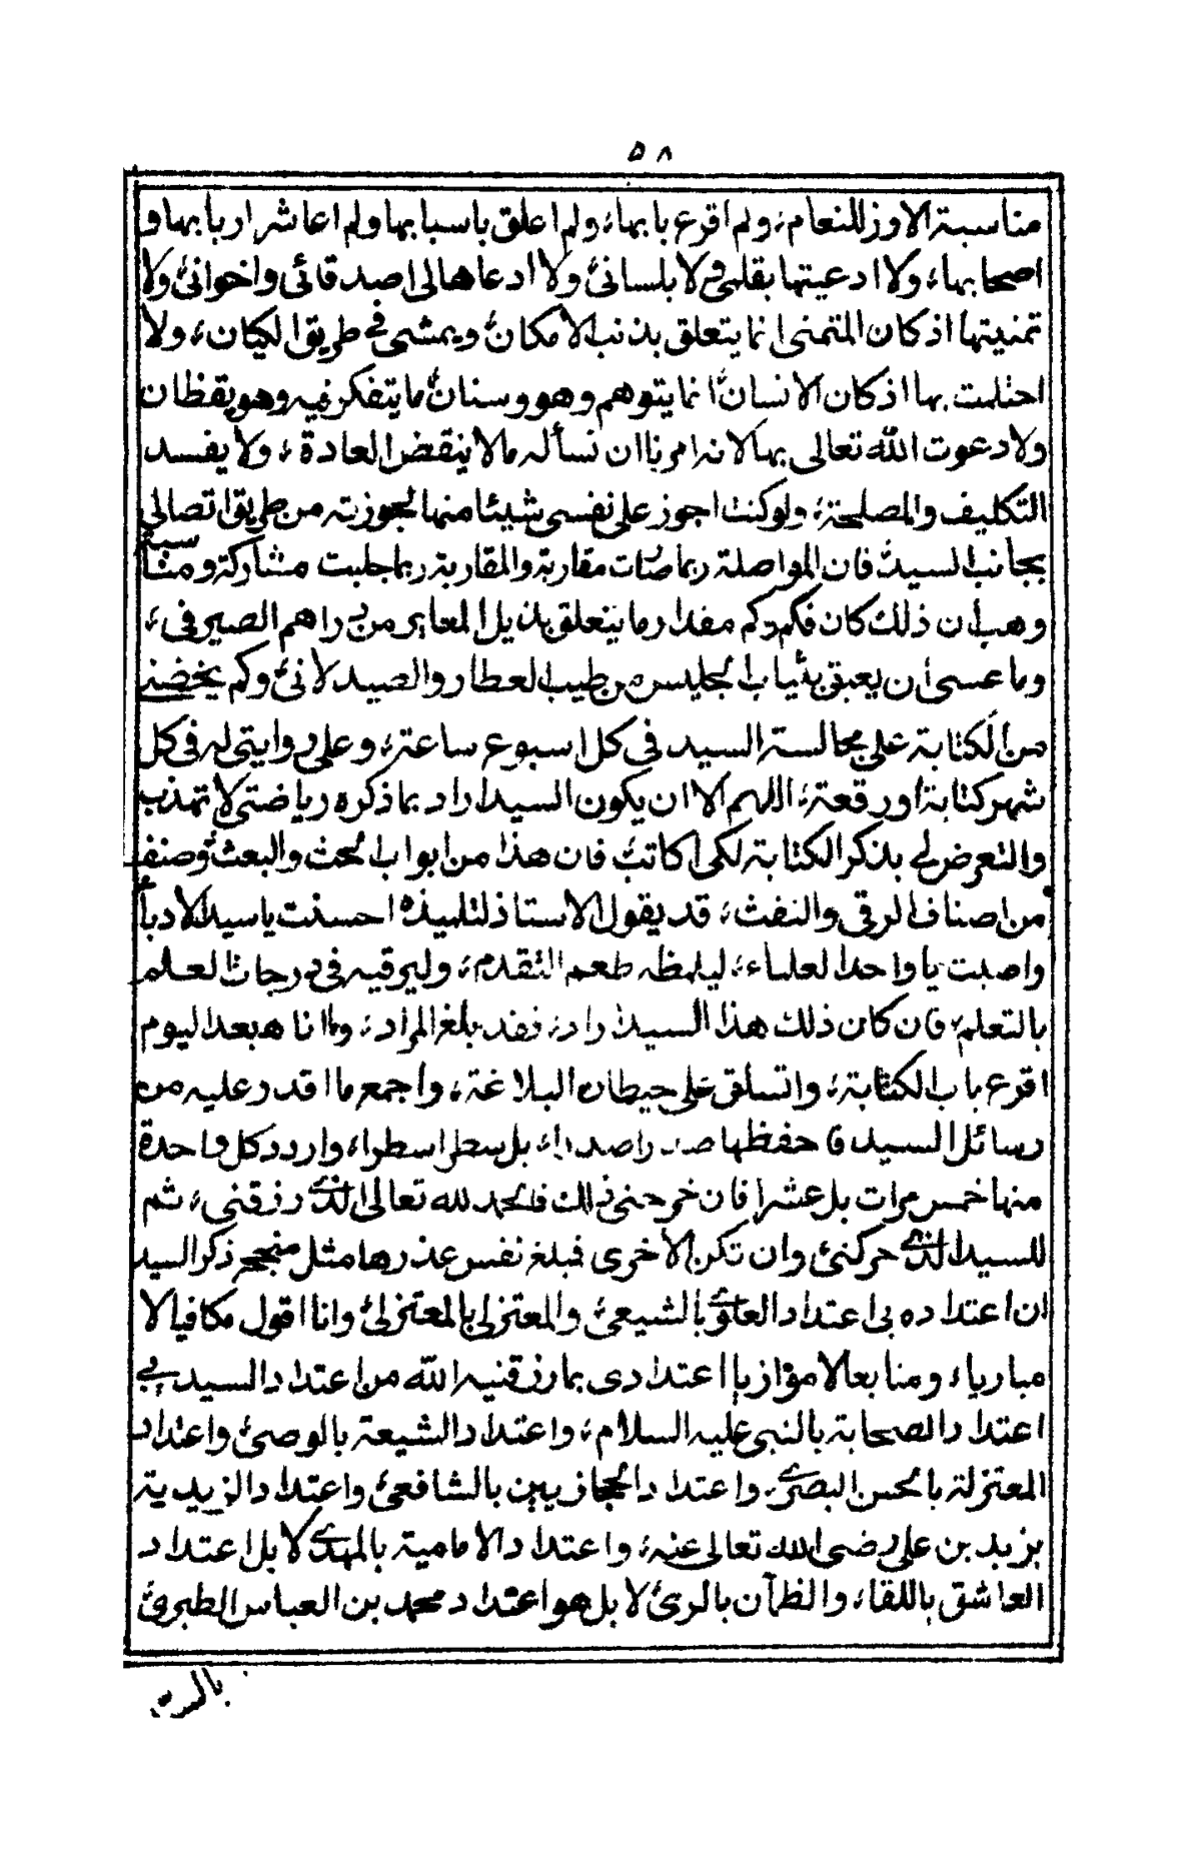 ٥٨
مناسبة الاوز للنعام، ولم اقرع بابها، ولم اعلق باسبابها ولم اعاشر اربابها و
اصحابها، ولا ادعيتها بقلبى لا بلسانى ولا ادعاها لى اصدقائى واخوانى ولا
تمنيتها اذ كان المتمنى انما يتعلق بذنب الامكان ويمشى فى طريق الكيان، ولا
احتلمت بها اذ كان الانسان انما يتوهم وهو وسنان ما يتفكر فيه وهو يقظان
ولا دعوت الله تعالى بها لانه امرنا ان نسأله ما لا ينقض العادة، ولا يفسد
التكليف والمصلحة، ولو كنت اجوز على نفسى شيئا منها لجوزته من طريق اتصالى
بجانب السيد فان المواصلة ربما صارت مقاربة والمقاربة ربما جلبت مشاركة ومناسبة
وهب ان ذلك كان فكم وكم مقدار ما يتعلق بذيل المعاير من دراهم الصيرفى،
وما عسى ان يعبق بثياب الجليس من طيب العطار والصيدلانى وكم يخضنى
من الكتابة على مجالسة السيد فى كل اسبوع ساعة، وعلى روايتى له فى كل
شهر كتابة او رقعة، اللهم الا ان يكون السيد اراد بما ذكره رياضتى لاتهذب
والتعرض لى بذكر الكتابة لكى اكاتب فان هذا من ابواب البحث والبعث وصنف
من اصناف الرقى والنفث، قد يقول الاستاذ لتلميذه احسنت يا سيد الادباء
واصبت يا واحد العلماء، ليلمظه طعم التقدم، وليرقيه فى درجات العلم
بالتعلم، فان كان ذلك هذا السيد اراد، فقد بلغ المراد، وها انا هـ بعد اليوم
اقرع باب الكتابة، واتسلق على حيطان البلاغة، واجمع ما اقدر عليه من
رسائل السيد فاحفظها صدرا صدرا، بل سطرا سطرا، واردد كل واحدة
منها خمس مرات بل عشرا فان خرجنى ذلك فالحمد لله تعالى الذى رزقنى، ثم
للسيد الذى حركنى وان تكن الاخرى فمبلغ نفس عذرها مثل منجح ذكر السيد
ان اعتداده بى اعتداد العلوى بالشيعى والمعتزلى بالمعتزلى وانا اقول مكافيا لا
مباريا، ومتابعا لا موازيا اعتدادى بما رزقنيه الله من اعتداد السيد بى
اعتداد الصحابة بالنبى عليه السلام، واعتداد الشيعة بالوصى واعتداد
المعتزلة بالحسن البصرى، واعتداد الحجازيين بالشافعى واعتداد الزيدية
بزيد بن على رضى الله تعالى عنه، واعتداد الامامية بالمهدى لا بل اعتداد
العاشق باللقا، والظمآن بالرى لا بل هو اعتداد محمد بن العباس الطبرى